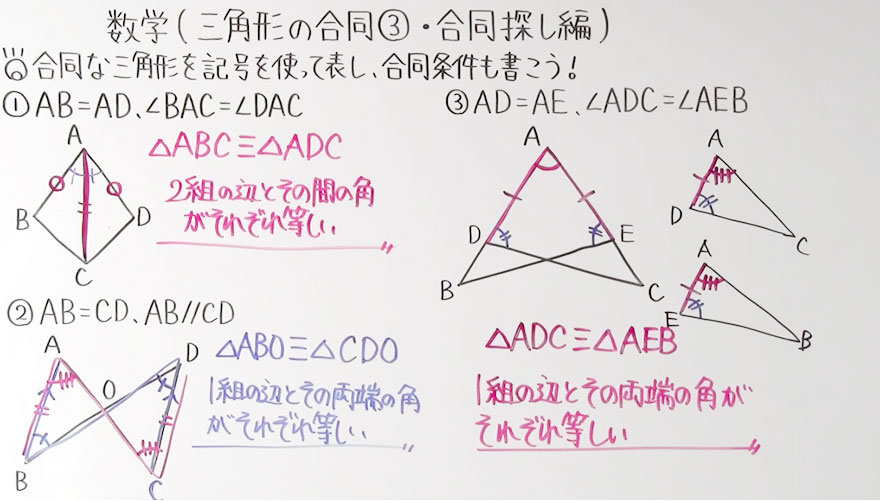 数学(三角形の合同③・合同探し編)
◎合同な三角形を記号を使って表し、合同条件も書こう!
①AB=AD、∠BAC=∠DAC
A
B
D
C
△ABC≡△ADC
2組の辺とその間の角
がそれぞれ等しい
②AB=CD、AB//CD
A
D
O
B
C
△ABO≡△CDO
1組の辺とその両端の角
がそれぞれ等しい
③AD=AE、∠ADC=∠AEB
A
D
E
B
C
A
D
C
A
E
B
△ADC≡△AEB
1組の辺とその両端の角が
それぞれ等しい